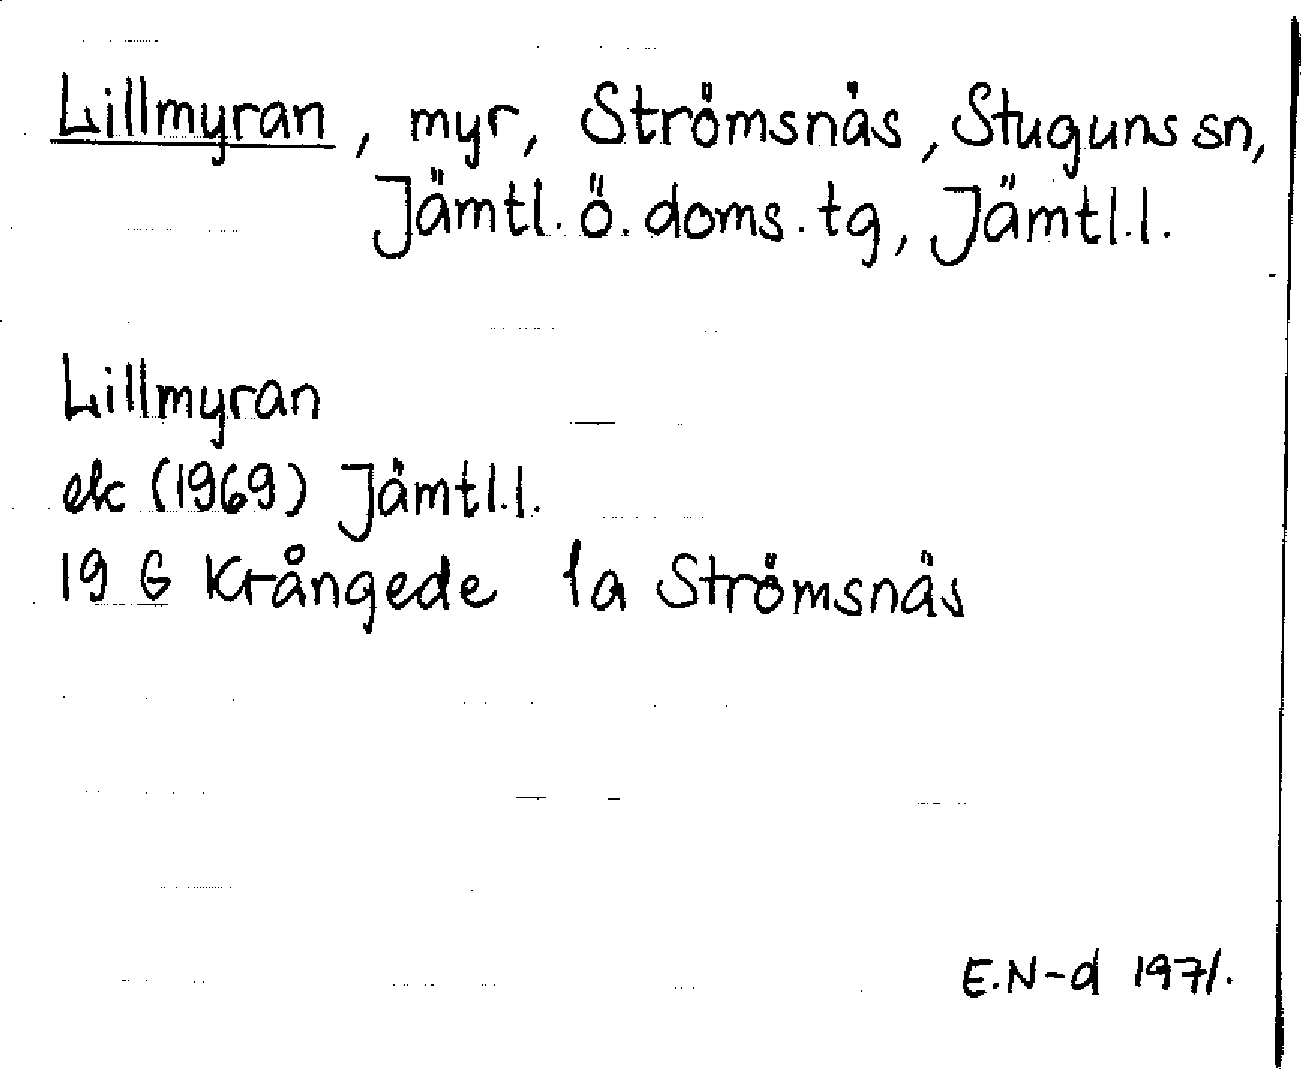 Lillmyran, myr, Strömsnäs, Stuguns sn,
Jämtl. ö. doms. tg, Jämtl.l.
Lillmyran
ek (1969) Jämtl.l.
19 G Krångede 1a Strömsnäs
E.N-d 1971.